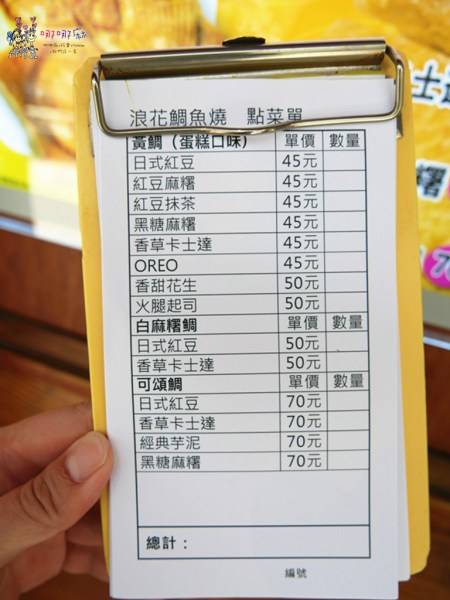 浪花鯛魚燒 點菜單
黃鯛（蛋糕口味） 單價 數量
日式紅豆 45元
紅豆麻糬 45元
紅豆抹茶 45元
黑糖麻糬 45元
香草卡士達 45元
OREO 45元
香甜花生 50元
火腿起司 50元
白麻糬鯛 單價 數量
日式紅豆 50元
香草卡士達 50元
可頌鯛 單價 數量
日式紅豆 70元
香草卡士達 70元
經典芋泥 70元
黑糖麻糬 70元
總計：
編號
士達
糬
70